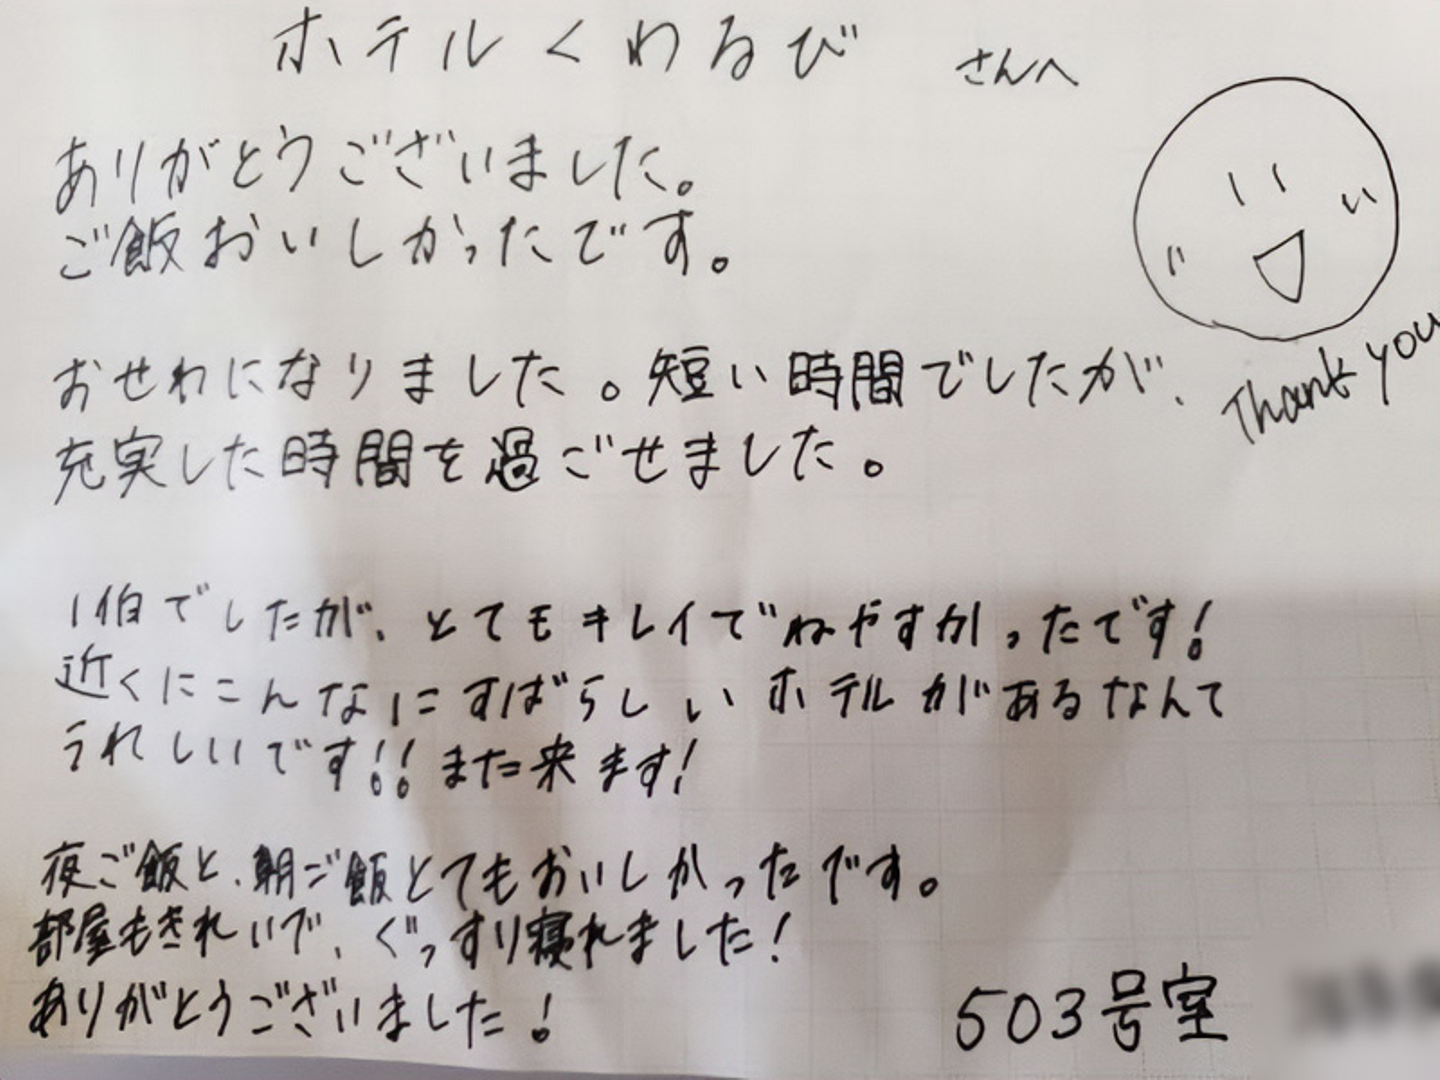 ホテルくわるび さんへ
ありがとうございました。
ご飯おいしかったです。
Thank you
おせわになりました。短い時間でしたが、
充実した時間を過ごせました。
1伯でしたが、とてもキレイでねやすかったです!
近くにこんなにすばらしいホテルがあるなんて
うれしいです!!また来ます!
夜ご飯と、朝ご飯とてもおいしかったです。
部屋もきれいで、ぐっすり寝れました!
ありがとうございました!
503号室